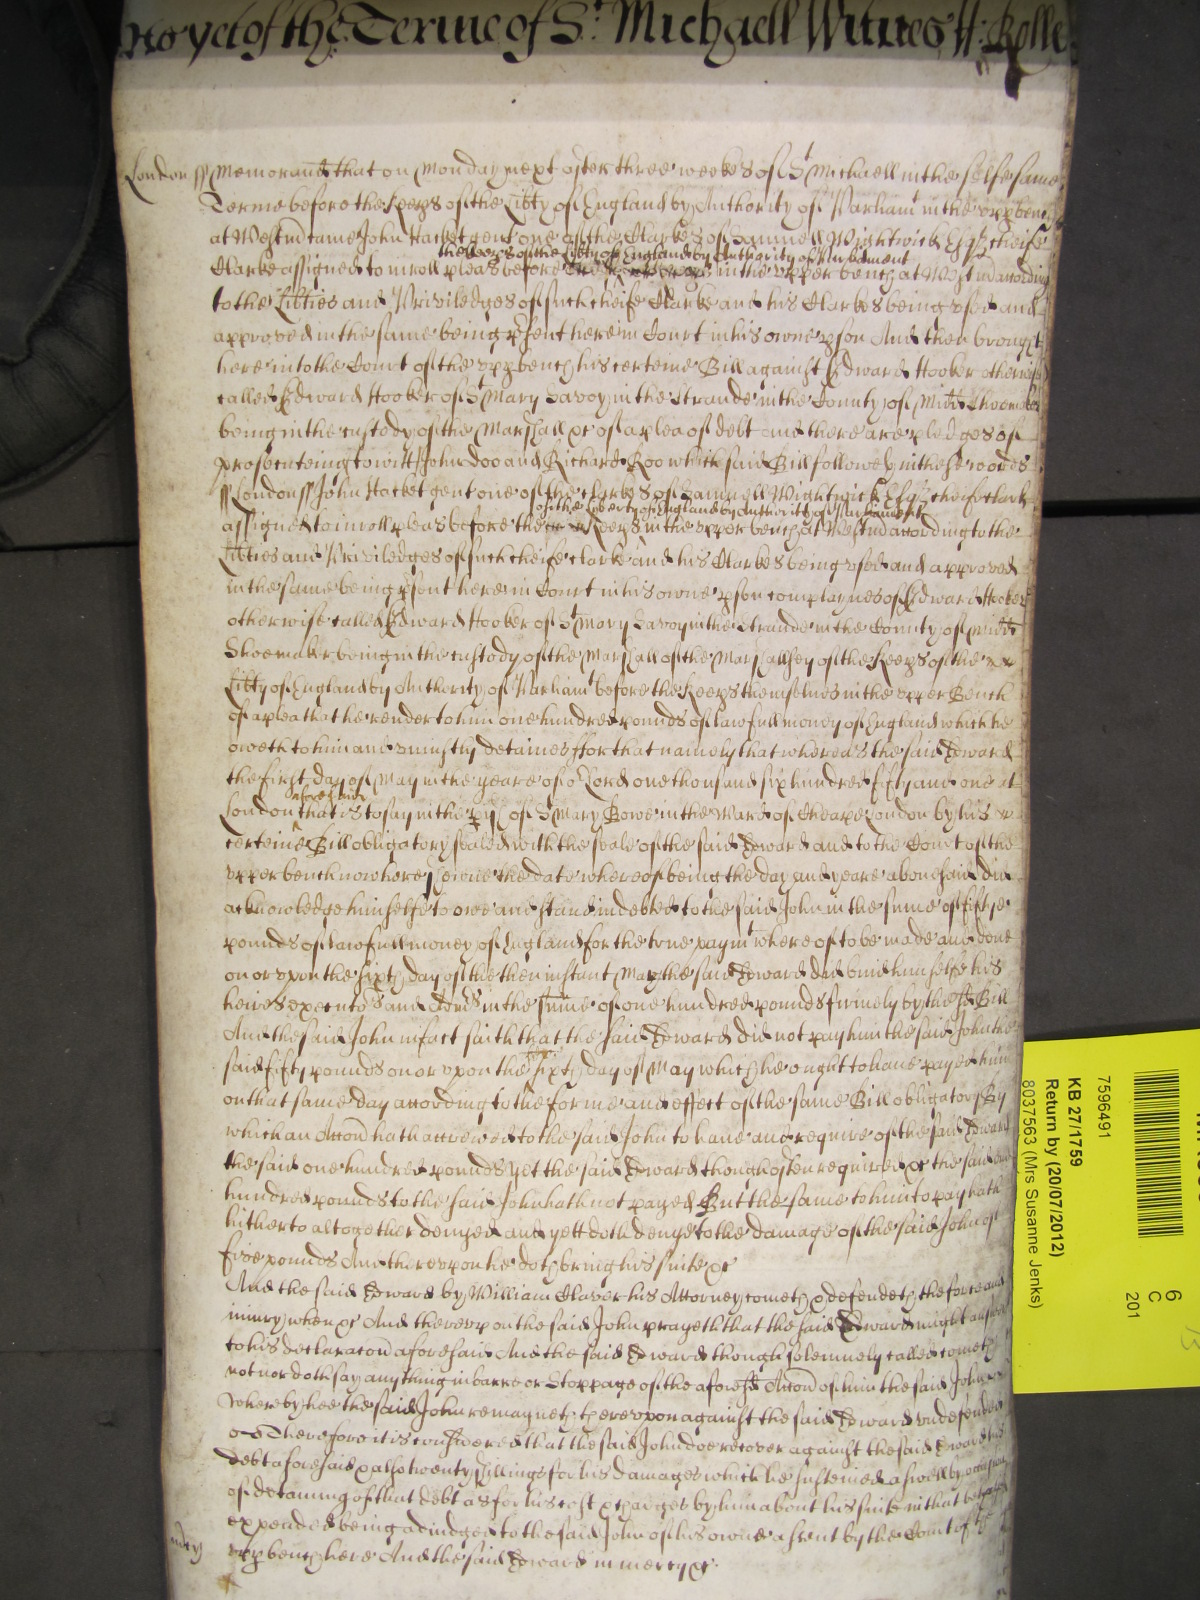 No yet of the Terme of St Michaell Witnes H: Rolle
London ss Memorand that on Monday next after three weekes of St Michaell in the selfe same
Terme before the Keeps of the Libty of England by Authority of Parliamt in the upp bench
at Westm came John Hacket gent one of the Clarkes of Samuell Wightwick Esqr cheife
the keepers of the Libty of England by Authority of Parliament
Clarke assigned to inroll pleas before in the upper bench at Westm according
to the Libties and Priviledges of such cheife Clarke and his Clarkes being used and
approved in the same being psent here in Court in his owne pson And then brought
here into the Court of the upp bench his certeine Bill against Edward Hooker otherwise
called Edward Hooker of St Mary Savoy in the Strande in the County of Midd Shoemaker
being in the custody of the Marshall &c of a plea of debt and there are pledges of
prosecuteing to witt John Doo and Richard Roo which said Bill followeth in these words
ss London ss John Hacket gent one of the clarkes of Samuell Wightwick Esqr cheife clark
of the Liberty of England by authority of Parliament
assigned to inroll pleas before the Keeps in the upper bench at Westm according to the
Libties and Priviledges of such cheife clarke and his Clarkes being used and approved
in the same being psent here in Court in his owne pson complaynes of Edward Hooker
otherwise called Edward Hooker of St Mary Savoy in the Strande in the County of Midd
Shoemaker being in the custody of the Marshall of the Marshallsey of the Keeps of the
Libty of England by Authority of Parliamt before the Keeps themselves in the upper Bench
of a plea that he render to him one hundred pounds of lawfull money of England which he
oweth to him and uniustly detaines ffor that namely that whereas the said Edward
the first day of May in the yeare of or Lord one thousand six hundred fifty and one at
aforesaid
London that is to say in the pish of St Mary Bowe in the Ward of Cheape London by his
certeine Bill obligatory sealed with the seale of the said Edward and to the Court of the
upper bench now here shewne the date whereof being the day and yeare abovesaid did
acknowledge himselfe to owe and stand indebted to the said John in the sume of fiftye
pounds of lawfull money of England for the true paymt whereof to be made and done
on or upon the sixth day of the then instant May the said Edward did bind himselfe his
heires executors and Admrs in the sume of one hundred pounds firmely by the sd Bill
And the said John in fact saith that the said Edward did not pay him the said John the
said fifty pounds on or upon the sixth day of May which he ought to have payed him
on that same day according to the forme and effect of the same Bill obligatory By
which an Accon hath accrewed to the said John to have and require of the said Edward
the said one hundred pounds yet the said Edward though often required &c the said one
hundred pounds to the said John hath not payed But the same to him to pay hath
hitherto altogether denyed and yett doth denye to the damage of the said John of
five pounds And thereupon he doth bring his suite &c
And the said Edward by William Claver his Attorney cometh & defendeth the force and
iniury when &c And thereupon the said John prayeth that the said Edward might answer
to his declaracon aforesaid And the said Edward though solemnely called cometh
not nor doth say any thing in barre or Stoppage of the aforesd Accon of him the said John
Whereby hee the said John remayneth thereupon against the said Edward undefended
Therefore it is considered that the said John doe recover against the said Edward his
debt aforesaid & also twenty shillings for his damages which he susteined aswell by occasion
of detaining of that debt as for his cost & charges by him about his suite in that behalfe
expended being adiudged to the said John of his owne assent by the Court of the
upp bench here And the said Edward in mercy &c
mcy
7596491
KB 27/1759
Return by (20/07/2012)
8037563 (Mrs Susanne Jenks)
6
C
201